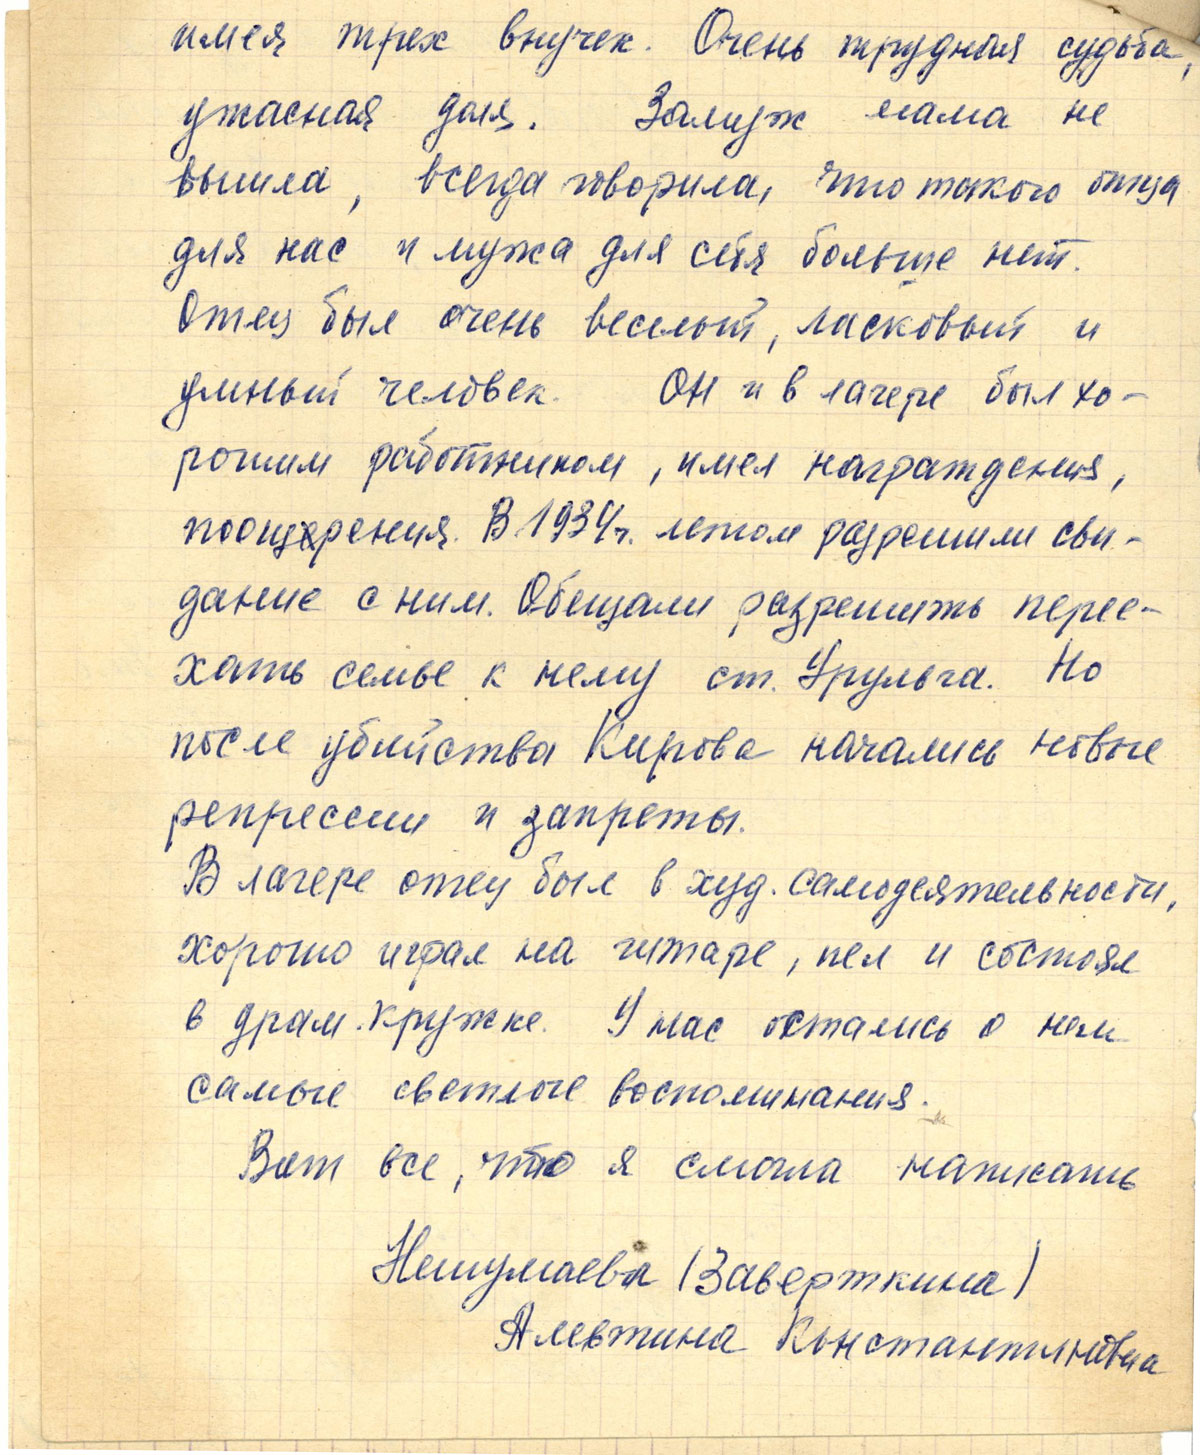 имея трех внучек. Очень трудная судьба,
ужасная доля. Замуж мама не
вышла, всегда говорила, что такого отца
для нас и мужа для себя больше нет.
Отец был очень веселый, ласковый и
умный человек. Он и в лагере был хо-
рошим работником, имел награждения,
поощрения. В 1934г. летом разрешили сви-
дание с ним. Обещали разрешить перее-
хать семье к нему ст. Урульга. Но
после убийства Кирова начались новые
репрессии и запреты.
В лагере отец был в худ. самодеятельности,
хорошо играл на гитаре, пел и состоял
в драм. кружке. У нас остались о нем
самые светлые воспоминания.
Вот все, что я смогла написать
Нешумаева (Заверткина)
Алевтина Константиновна